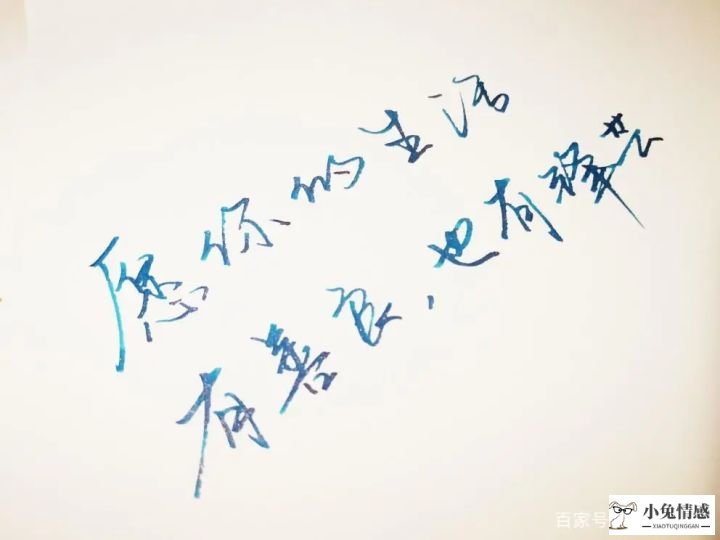 愿你的生活
有善良，也有
百家号
小兔情感
XIAOTUQINGGAN